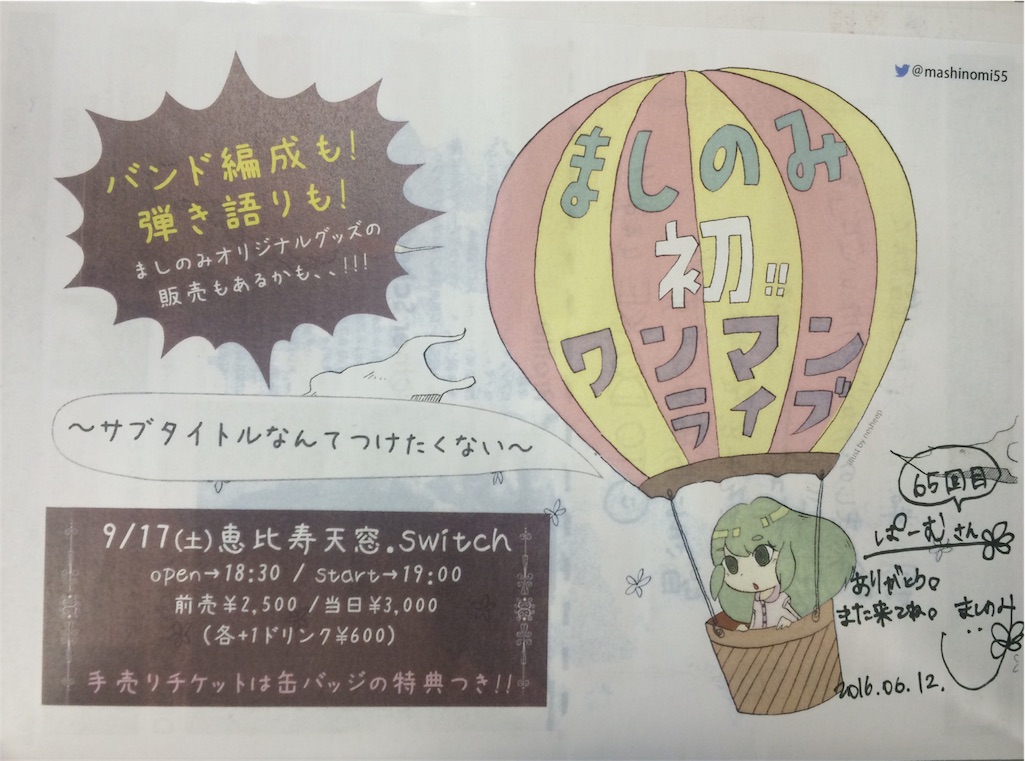 @mashinomi55
バンド編成も!
弾き語りも!
ましのみオリジナルグッズの
販売もあるかも、、!!!
ましのみ
初!!
ワンマン
ライブ
〜サブタイトルなんてつけたくない〜
illust by nesheep
9/17(土)恵比寿天窓.switch
open→18:30 / start→19:00
前売¥2,500 /当日¥3,000
(各+1ドリンク¥600)
手売りチケットは缶バッジの特典つき!!
65回目
ぱーむさん
ありがとう。
また来てね。
ましのみ
2016.06.12.